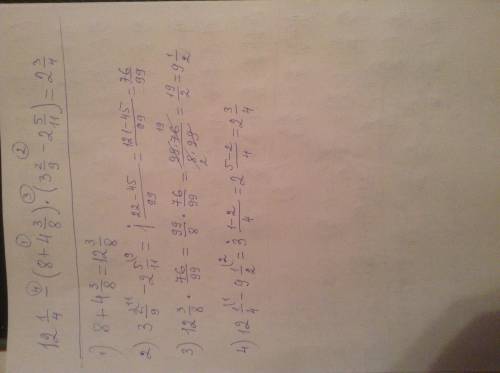 12 1/4 - (8 + 4 3/8) · (3 2/9 - 2 5/11) = 2 3/4
④ ① ③ ②
1) 8 + 4 3/8 = 12 3/8
2) 3 2/9 ¹¹ - 2 5/11 ⁹ = 1 (22-45)/99 = (121-45)/99 = 76/99
3) 12 3/8 · 76/99 = 99/8 · 76/99 = (99·76 ¹⁹)/(8 ₂·99) = 19/2 = 9 1/2
4) 12 1/4 ¹ - 9 1/2 ² = 3 (1-2)/4 = 2 (5-2)/4 = 2 3/4